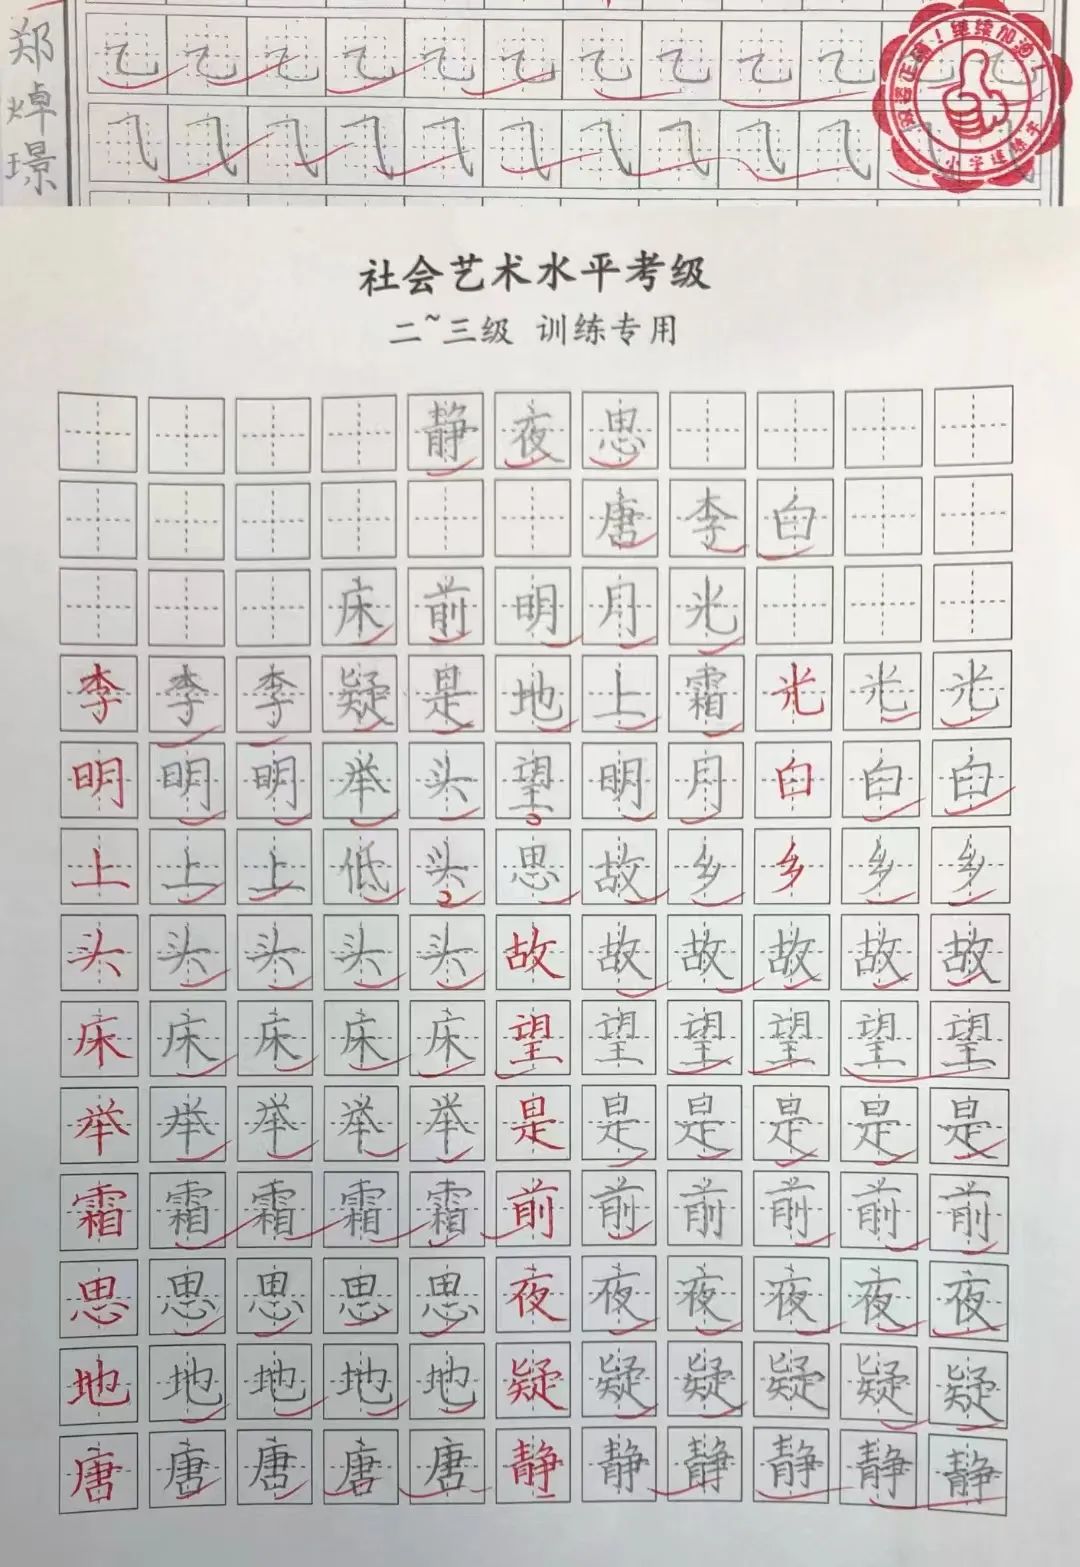 郑焯璟
乙乙乙乙乙乙乙乙乙乙
⺄⺄⺄⺄⺄⺄⺄⺄⺄⺄
继续加油！
小字速练字
社会艺术水平考级
二~三级 训练专用
静夜思
唐李白
床前明月光
李李李疑是地上霜光光光
明明明举头望明月白白白
上上上低头思故乡乡乡乡
头头头头头故故故故故故
床床床床床望望望望望望
举举举举举是是是是是是
霜霜霜霜霜前前前前前前
思思思思思夜夜夜夜夜夜
地地地地地疑疑疑疑疑疑
唐唐唐唐唐静静静静静静